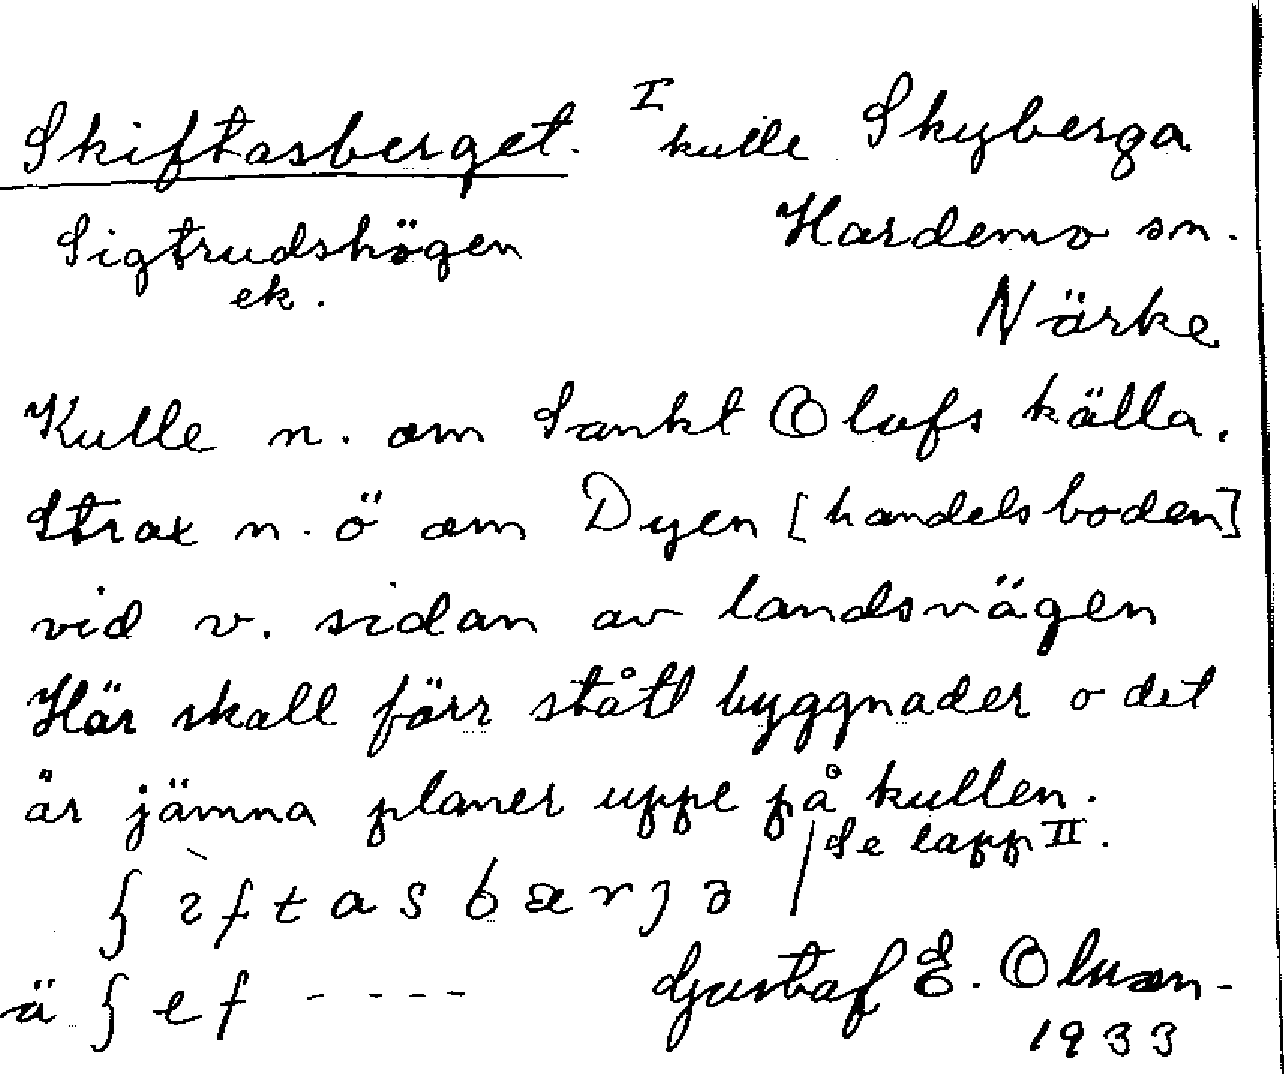 Skiftasberget. I kulle Skyberga
Sigtrudshögen Hardemo sn.
ek. Närke
Kulle n. om Sankt Olofs källa.
Strax n. ö om Dyen [handelsboden]
vid v. sidan av landsvägen
Här skall förr stått byggnader o det
är jämna planer uppe på kullen.
Se lapp II.
ʃìftasbærjə
ä ʃef - - - - Gustaf E. Olsson -
1933